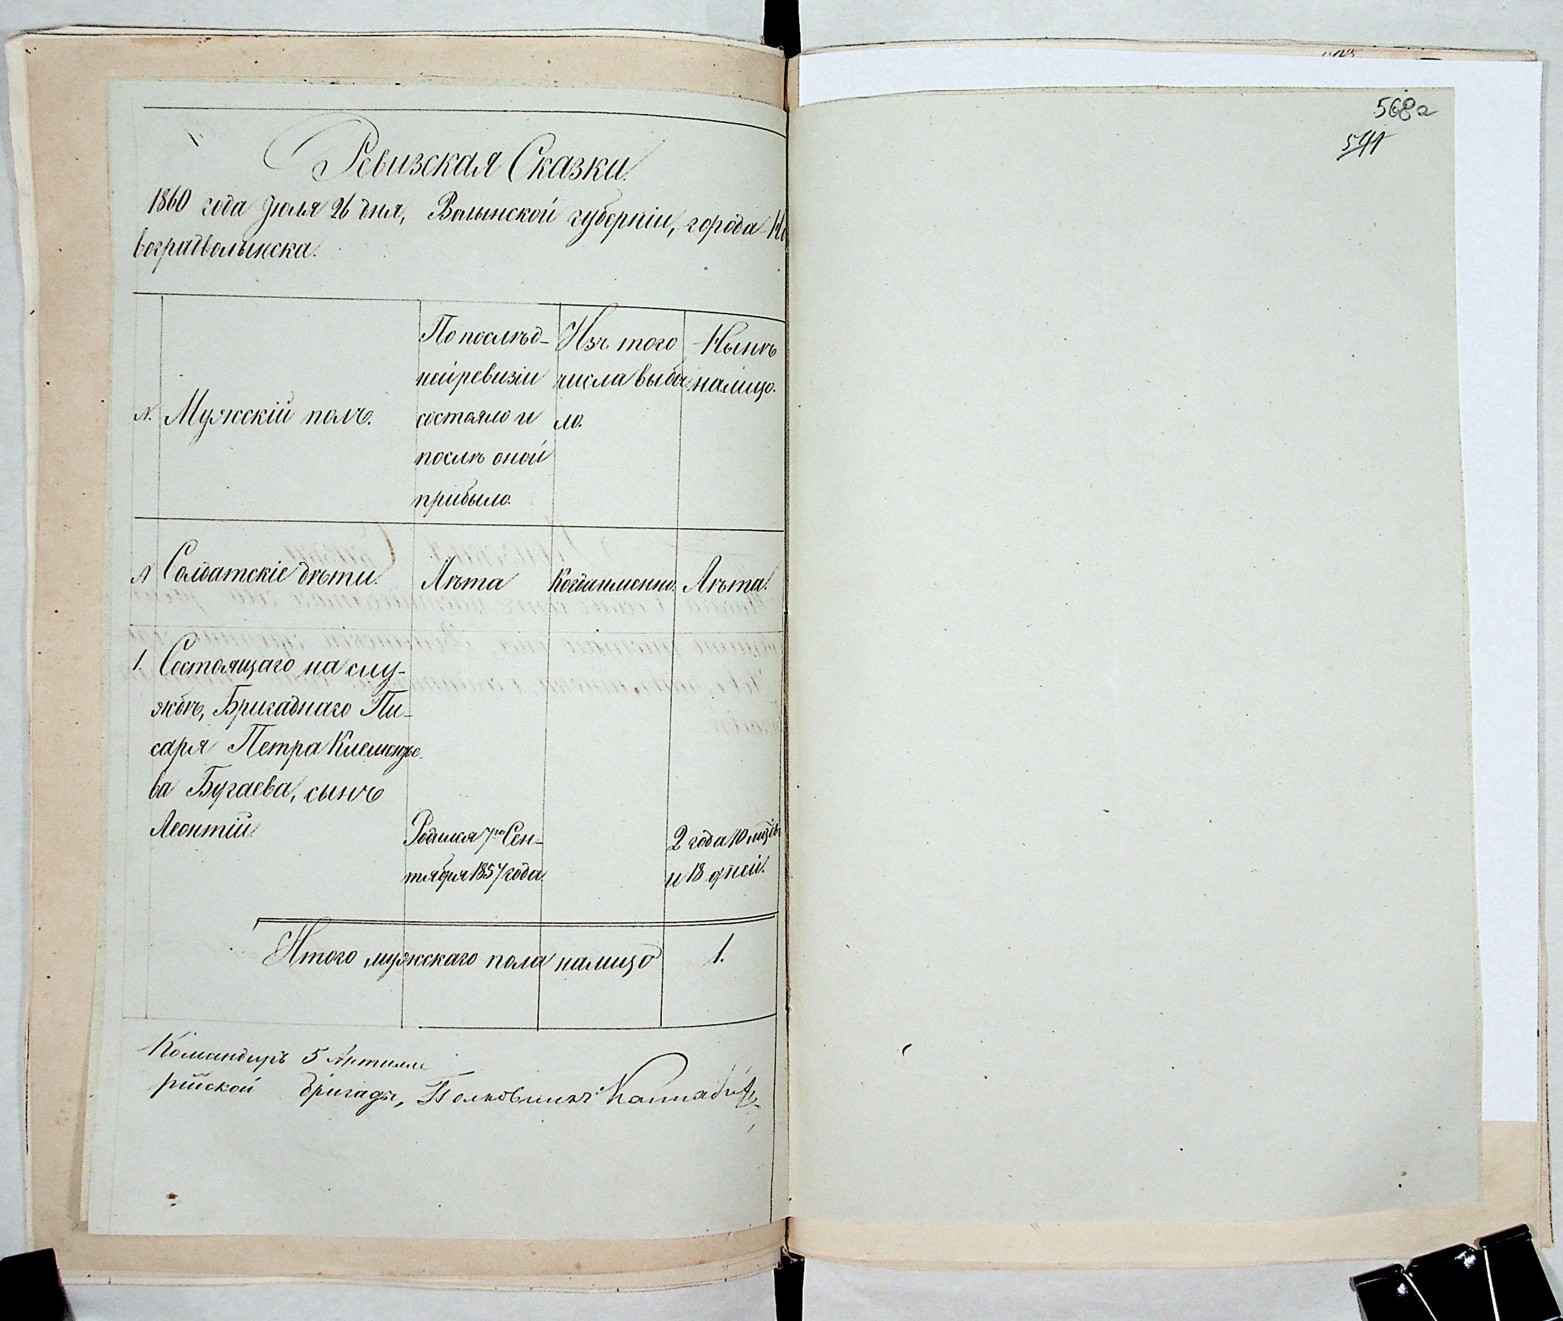 Ревизская Сказка.
1860 года Июля 26 дня, Волынской губерніи, города Но
воградволынска.
№. Мужскій полъ.
По послѣд-
ней ревизіи
состояло и
послѣ оной
прибыло.
Изъ того
числа выбы
ло.
Нынѣ
налицо.
№ Солдатскіе дѣти. Лѣта Когда именно. Лѣта.
1. Состоящаго на слу-
жбѣ, Бригаднаго Пи-
саря Петра Клементье
ва Бугаева, сынъ
Леонтій
Родился 7го Сен-
тября 1857 года.
2 года 10 мѣс
и 18 дней.
Итого мужскаго пола налицо 1.
Командиръ 5 Артилле
рійской бригады, Полковникъ
568а
591